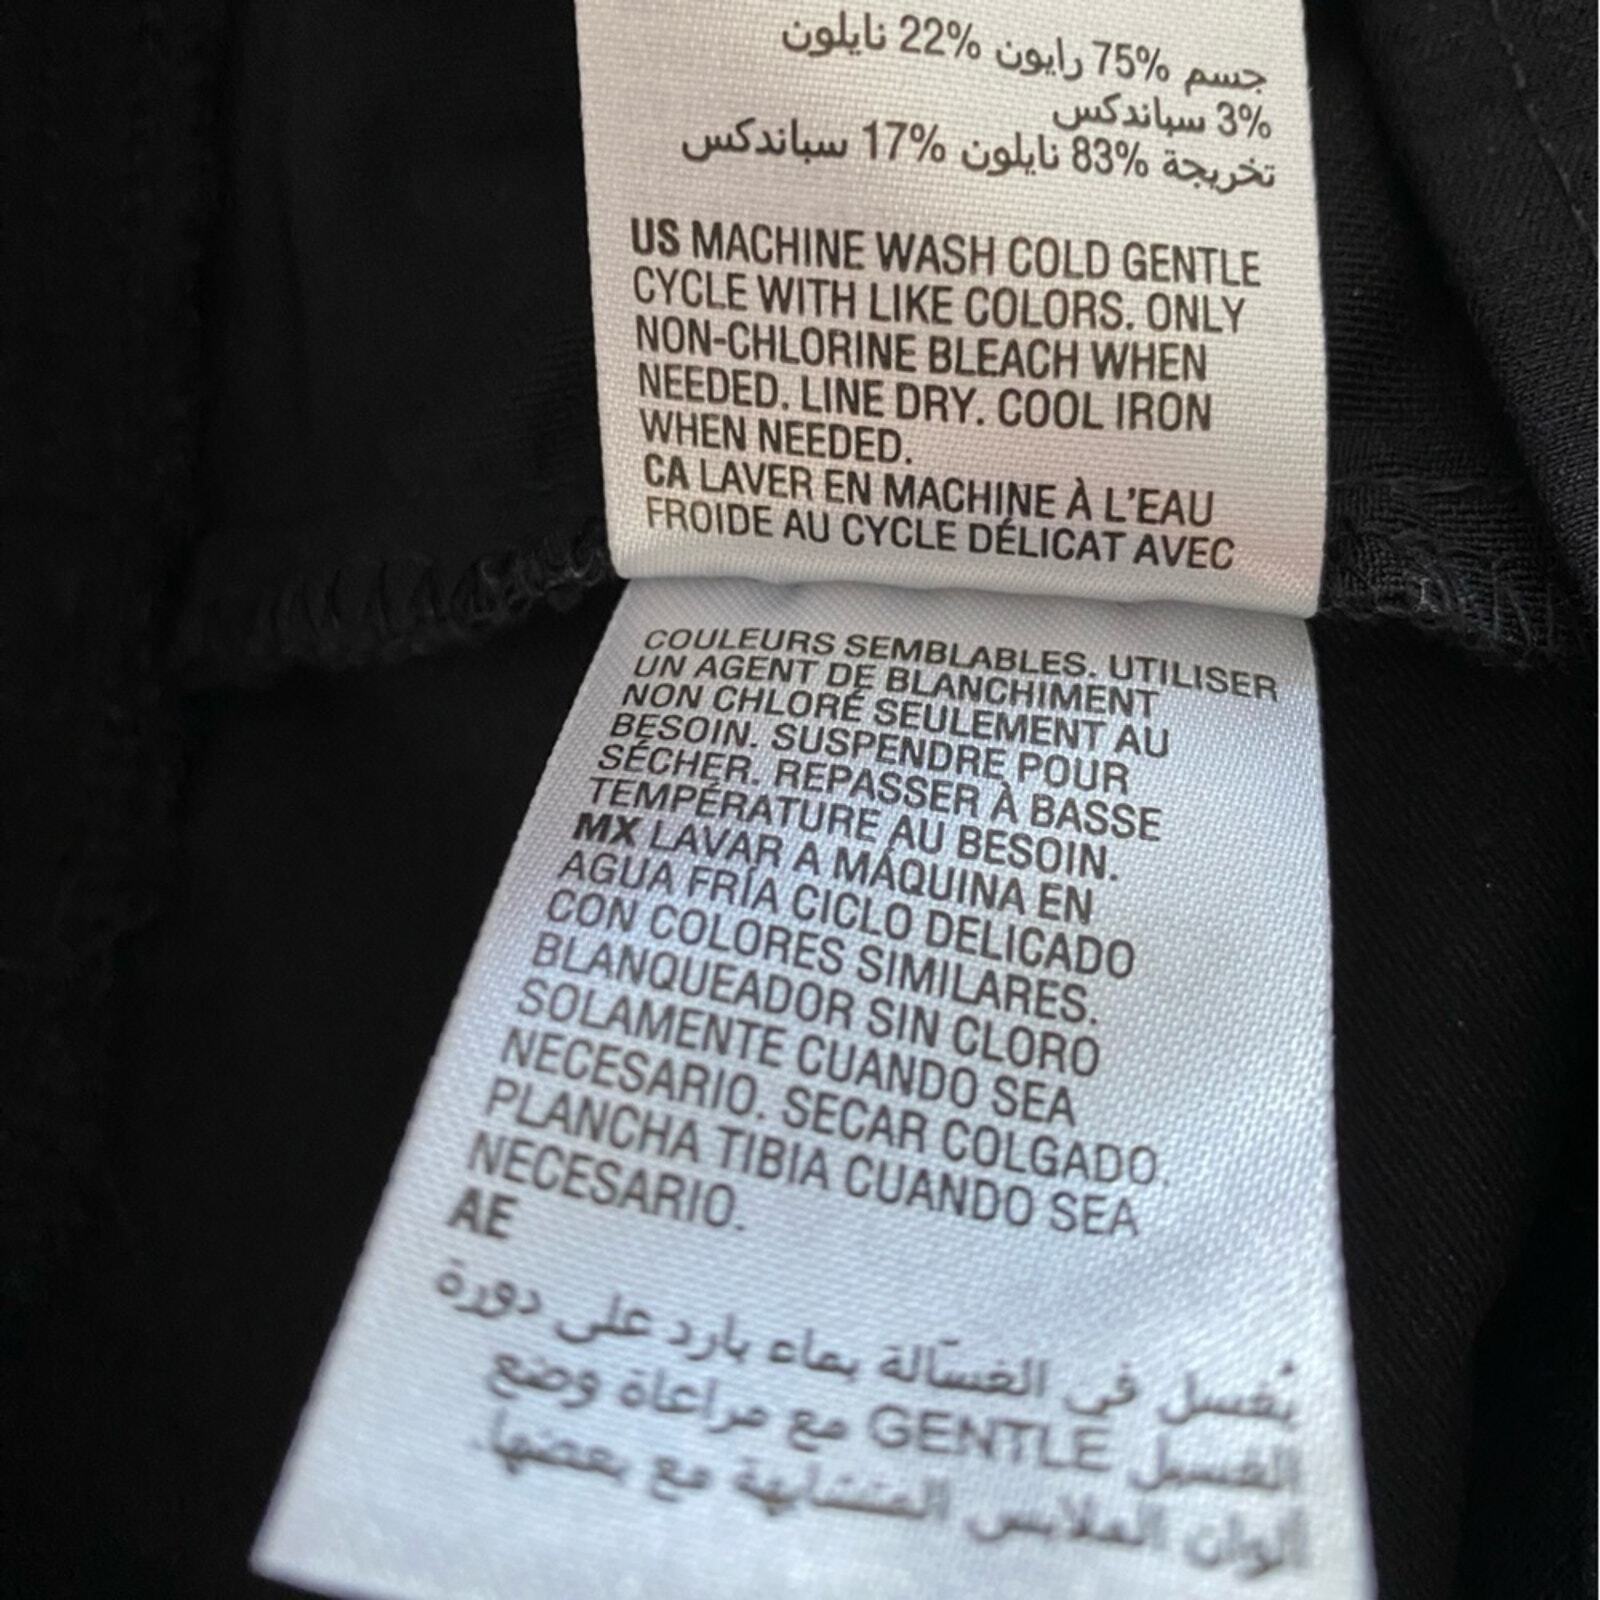 جسم 75% رايون 22% نايلون
3% سباندكس
تخريجة 83% نايلون 17% سباندكس
US MACHINE WASH COLD GENTLE
CYCLE WITH LIKE COLORS. ONLY
NON-CHLORINE BLEACH WHEN
NEEDED. LINE DRY. COOL IRON
WHEN NEEDED.
CA LAVER EN MACHINE À L'EAU
FROIDE AU CYCLE DÉLICAT AVEC
COULEURS SEMBLABLES. UTILISER
UN AGENT DE BLANCHIMENT
NON CHLORÉ SEULEMENT AU
BESOIN. SUSPENDRE POUR
SÉCHER. REPASSER À BASSE
TEMPÉRATURE AU BESOIN.
MX LAVAR A MÁQUINA EN
AGUA FRÍA CICLO DELICADO
CON COLORES SIMILARES.
BLANQUEADOR SIN CLORO
SOLAMENTE CUANDO SEA
NECESARIO. SECAR COLGADO.
PLANCHA TIBIA CUANDO SEA
NECESARIO.
AE
يُغسل في الغسّالة بماء بارد على دورة
الغسيل GENTLE مع مراعاة وضع
ألوان الملابس المتشابهة مع بعضها.